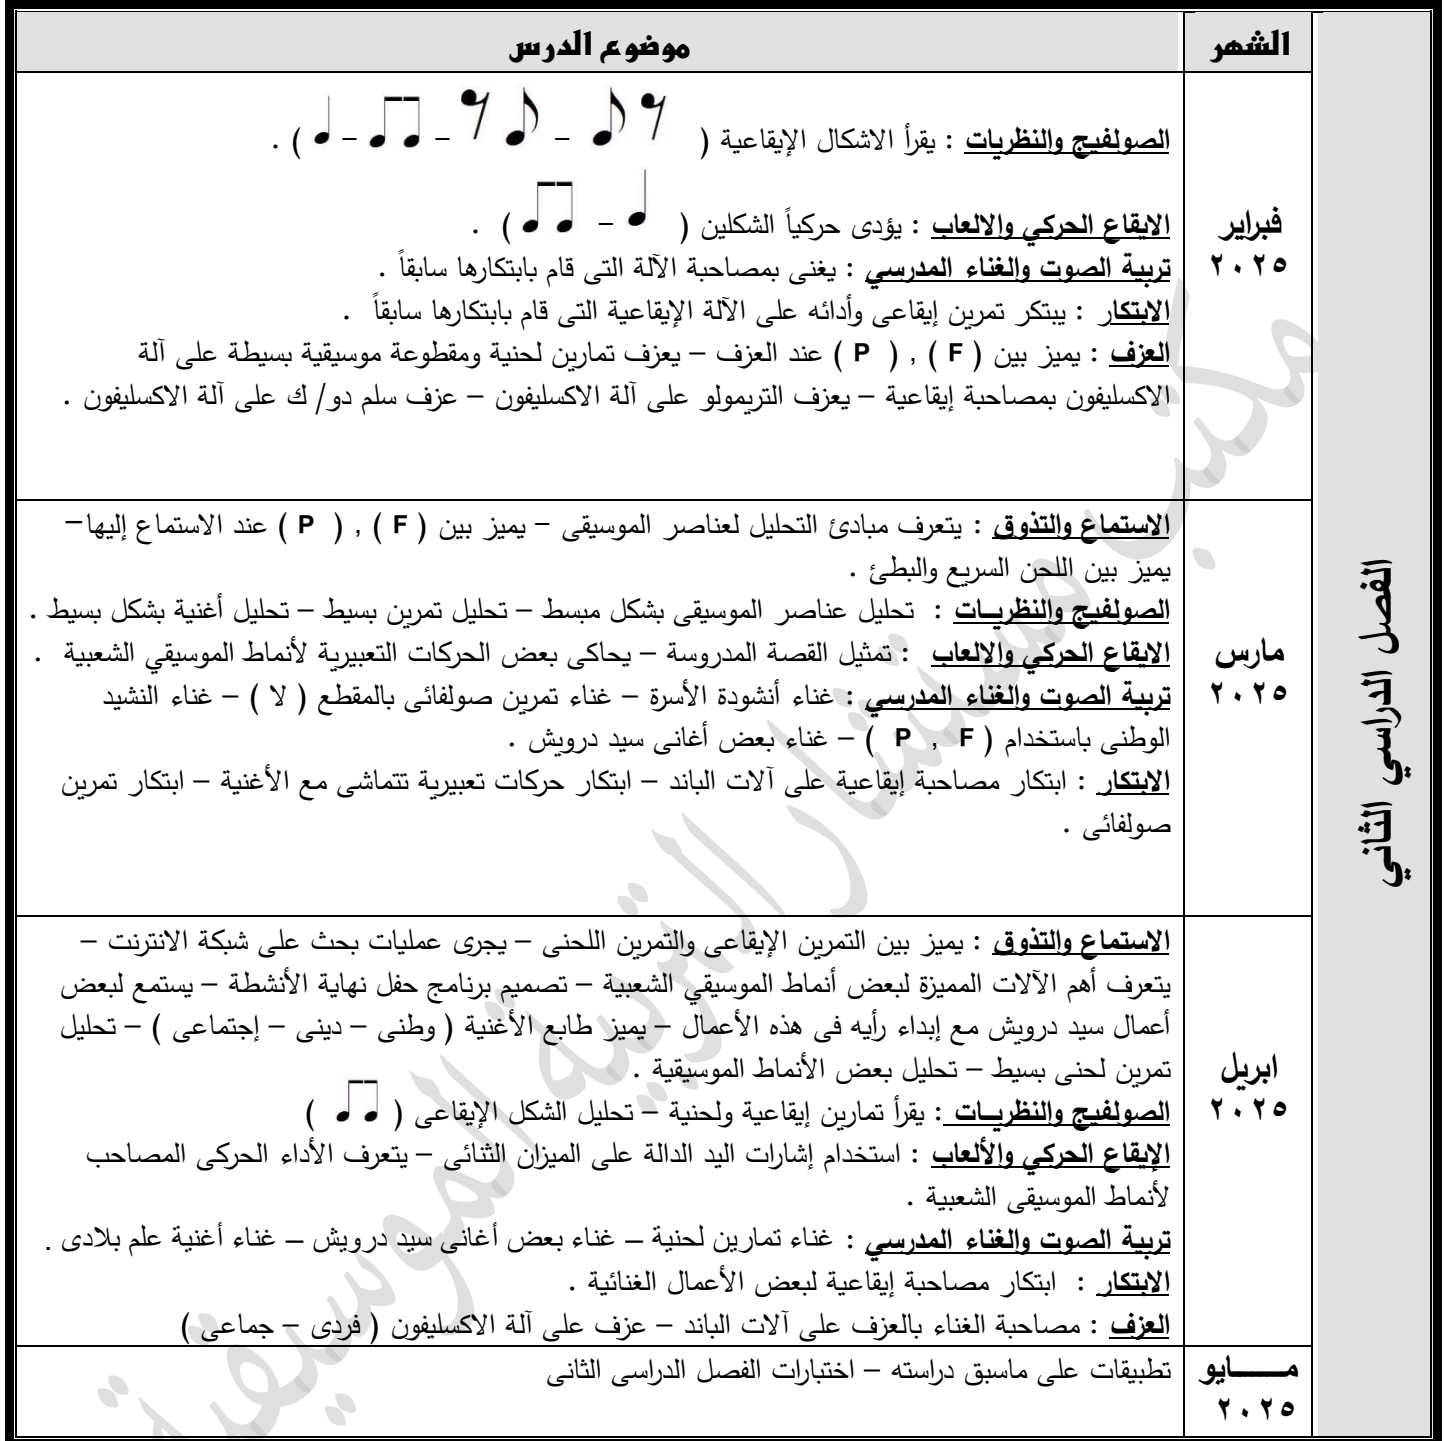 الشهر
موضوع الدرس
الفصل الدراسي الثاني
فبراير
٢٠٢٥
الصولفيج والنظريات : يقرأ الاشكال الإيقاعية ( – – – ) .
الايقاع الحركي والالعاب : يؤدى حركياً الشكلين ( – ) .
تربية الصوت والغناء المدرسي : يغنى بمصاحبة الآلة التى قام بابتكارها سابقاً .
الابتكار : يبتكر تمرين إيقاعى وأدائه على الآلة الإيقاعية التى قام بابتكارها سابقاً .
العزف : يميز بين ( F ) , ( P ) عند العزف – يعزف تمارين لحنية ومقطوعة موسيقية بسيطة على آلة
الاكسليفون بمصاحبة إيقاعية – يعزف التريمولو على آلة الاكسليفون – عزف سلم دو/ ك على آلة الاكسليفون .
مارس
٢٠٢٥
الاستماع والتذوق : يتعرف مبادئ التحليل لعناصر الموسيقى – يميز بين ( F ) , ( P ) عند الاستماع إليها–
يميز بين اللحن السريع والبطئ .
الصولفيج والنظريــات : تحليل عناصر الموسيقى بشكل مبسط – تحليل تمرين بسيط – تحليل أغنية بشكل بسيط .
الايقاع الحركي والالعاب : تمثيل القصة المدروسة – يحاكى بعض الحركات التعبيرية لأنماط الموسيقي الشعبية .
تربية الصوت والغناء المدرسي : غناء أنشودة الأسرة – غناء تمرين صولفائى بالمقطع ( لا ) – غناء النشيد
الوطنى باستخدام ( P , F ) – غناء بعض أغانى سيد درويش .
الابتكار : ابتكار مصاحبة إيقاعية على آلات الباند – ابتكار حركات تعبيرية تتماشى مع الأغنية – ابتكار تمرين
صولفائى .
ابريل
٢٠٢٥
الاستماع والتذوق : يميز بين التمرين الإيقاعى والتمرين اللحنى – يجرى عمليات بحث على شبكة الانترنت –
يتعرف أهم الآلات المميزة لبعض أنماط الموسيقي الشعبية – تصميم برنامج حفل نهاية الأنشطة – يستمع لبعض
أعمال سيد درويش مع إبداء رأيه فى هذه الأعمال – يميز طابع الأغنية ( وطنى – دينى – إجتماعى ) – تحليل
تمرين لحنى بسيط – تحليل بعض الأنماط الموسيقية .
الصولفيج والنظريــات : يقرأ تمارين إيقاعية ولحنية – تحليل الشكل الإيقاعى ( )
الإيقاع الحركي والألعاب : استخدام إشارات اليد الدالة على الميزان الثنائى – يتعرف الأداء الحركى المصاحب
لأنماط الموسيقى الشعبية .
تربية الصوت والغناء المدرسي : غناء تمارين لحنية – غناء بعض أغانى سيد درويش – غناء أغنية علم بلادى .
الابتكار : ابتكار مصاحبة إيقاعية لبعض الأعمال الغنائية .
العزف : مصاحبة الغناء بالعزف على آلات الباند – عزف على آلة الاكسليفون ( فردى – جماعى )
مــــــايو
٢٠٢٥
تطبيقات على ماسبق دراسته – اختبارات الفصل الدراسى الثانى
مكتب مستشار التربية الموسيقية